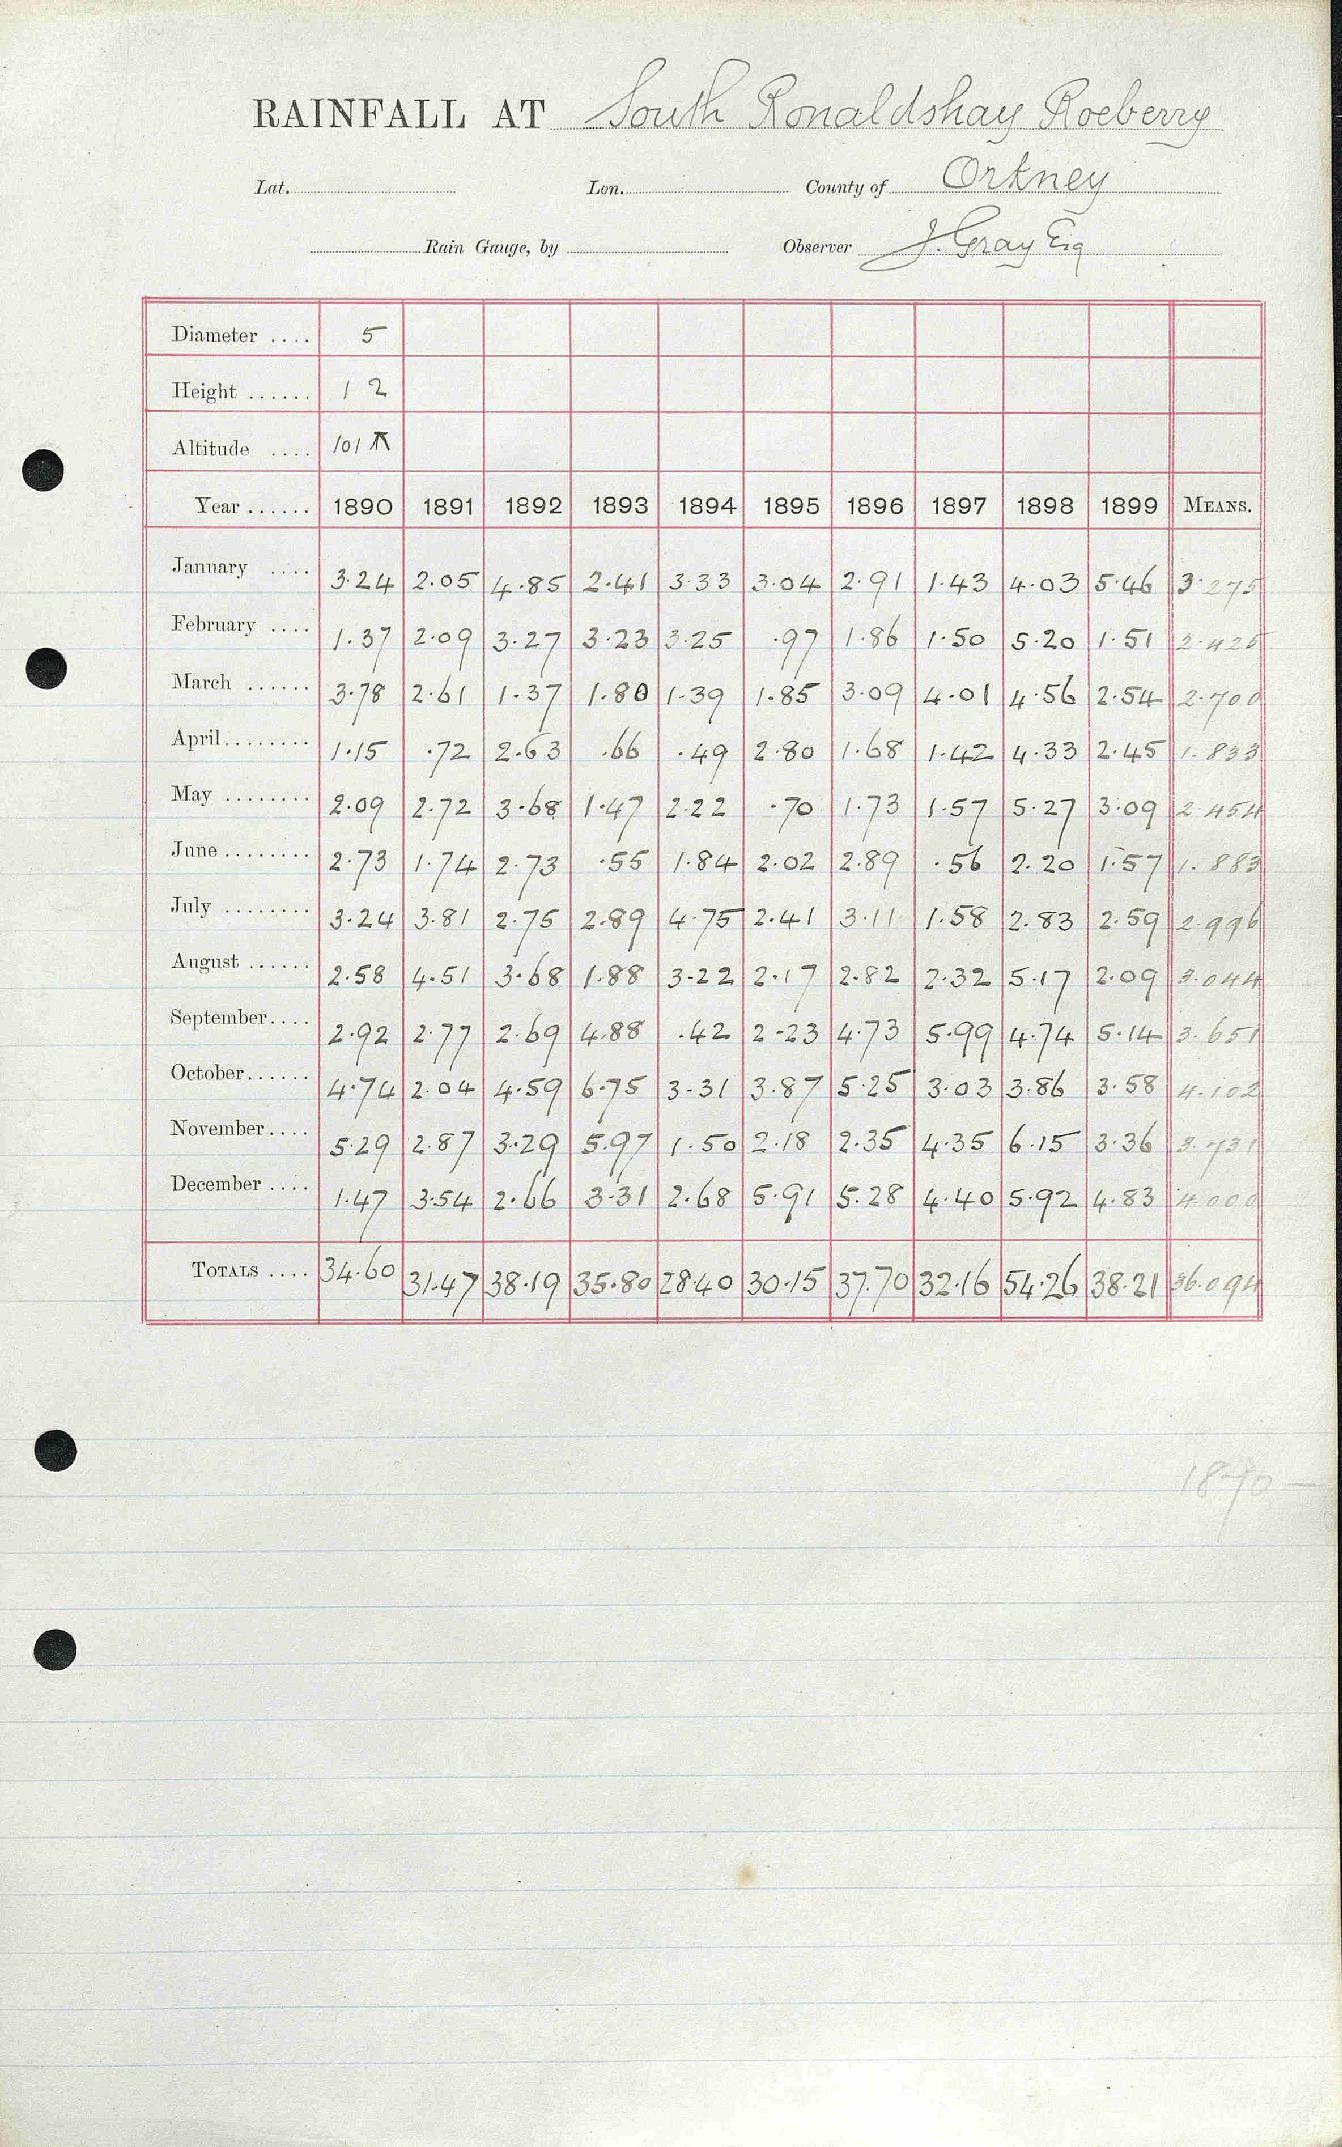 RAINFALL AT South Ronaldshay Roeberry
Lat. Lon. County of Orkney
Rain Gauge, by Observer J. Gray Esq
Diameter .... 5
Height ...... 1 2
Altitude .... 101
Year ...... 1890 1891 1892 1893 1894 1895 1896 1897 1898 1899 MEANS.
January .... 3.24 2.05 4.85 2.41 3.33 3.04 2.91 1.43 4.03 5.46 3.275
February .... 1.37 2.09 3.27 3.23 3.25 .97 1.86 1.50 5.20 1.51 2.425
March ...... 3.78 2.61 1.37 1.80 1.39 1.85 3.09 4.01 4.56 2.54 2.700
April........ 1.15 .72 2.63 .66 .49 2.80 1.68 1.42 4.33 2.45 1.833
May ........ 2.09 2.72 3.68 1.47 2.22 .70 1.73 1.57 5.27 3.09 2.454
June ........ 2.73 1.74 2.73 .55 1.84 2.02 2.89 .56 2.20 1.57 1.883
July ........ 3.24 3.81 2.75 2.89 4.75 2.41 3.11 1.58 2.83 2.59 2.996
August ...... 2.58 4.51 3.68 1.88 3.22 2.17 2.82 2.32 5.17 2.09 3.044
September.... 2.92 2.77 2.69 4.88 .42 2.23 4.73 5.99 4.74 5.14 3.651
October...... 4.74 2.04 4.59 6.75 3.31 3.87 5.25 3.03 3.86 3.58 4.102
November.... 5.29 2.87 3.29 5.97 1.50 2.18 2.35 4.35 6.15 3.36 3.731
December .... 1.47 3.54 2.66 3.31 2.68 5.91 5.28 4.40 5.92 4.83 4.000
TOTALS .... 34.60 31.47 38.19 35.80 28.40 30.15 37.70 32.16 54.26 38.21 36.094
1870 —